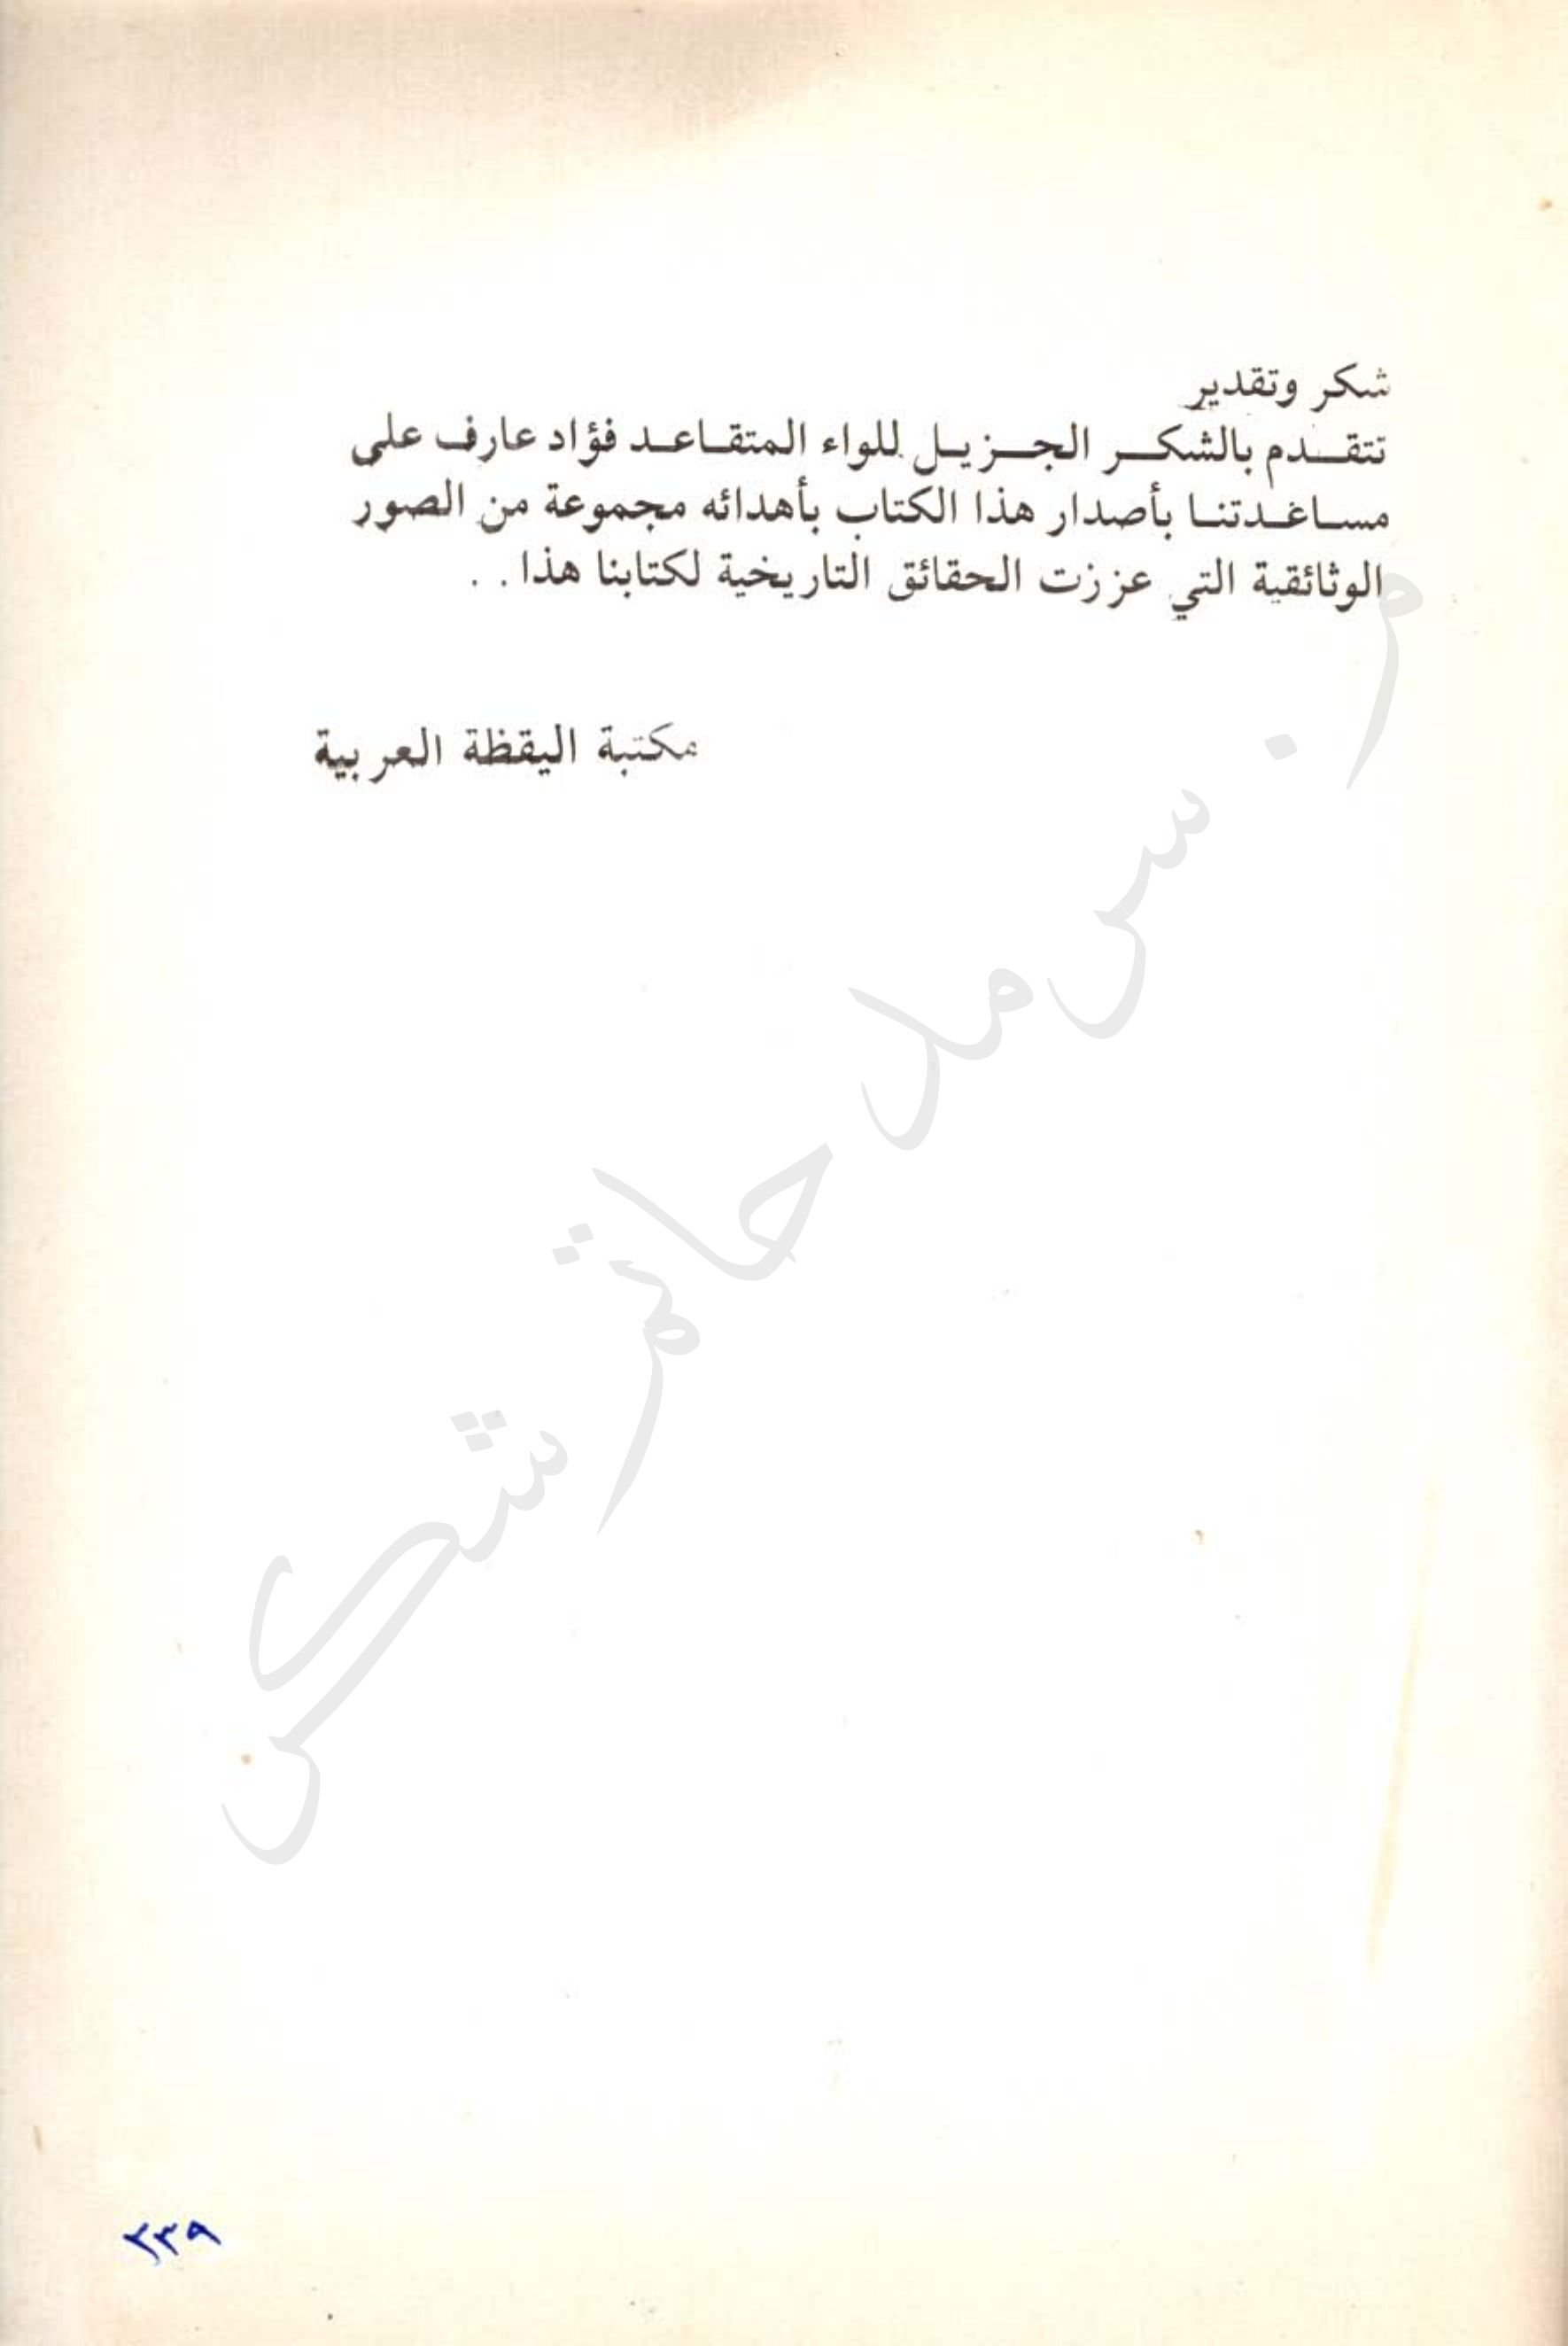 شكر وتقدير
تتقدم بالشكر الجزيل للواء المتقاعد فؤاد عارف على
مساغدتنا بأصدار هذا الكتاب بأهدائه مجموعة من الصور
الوثائقية التي عززت الحقائق التاريخية لكتابنا هذا . .
مكتبة اليقظة العربية
م . سرمد حاتم شكر
٢٣٩